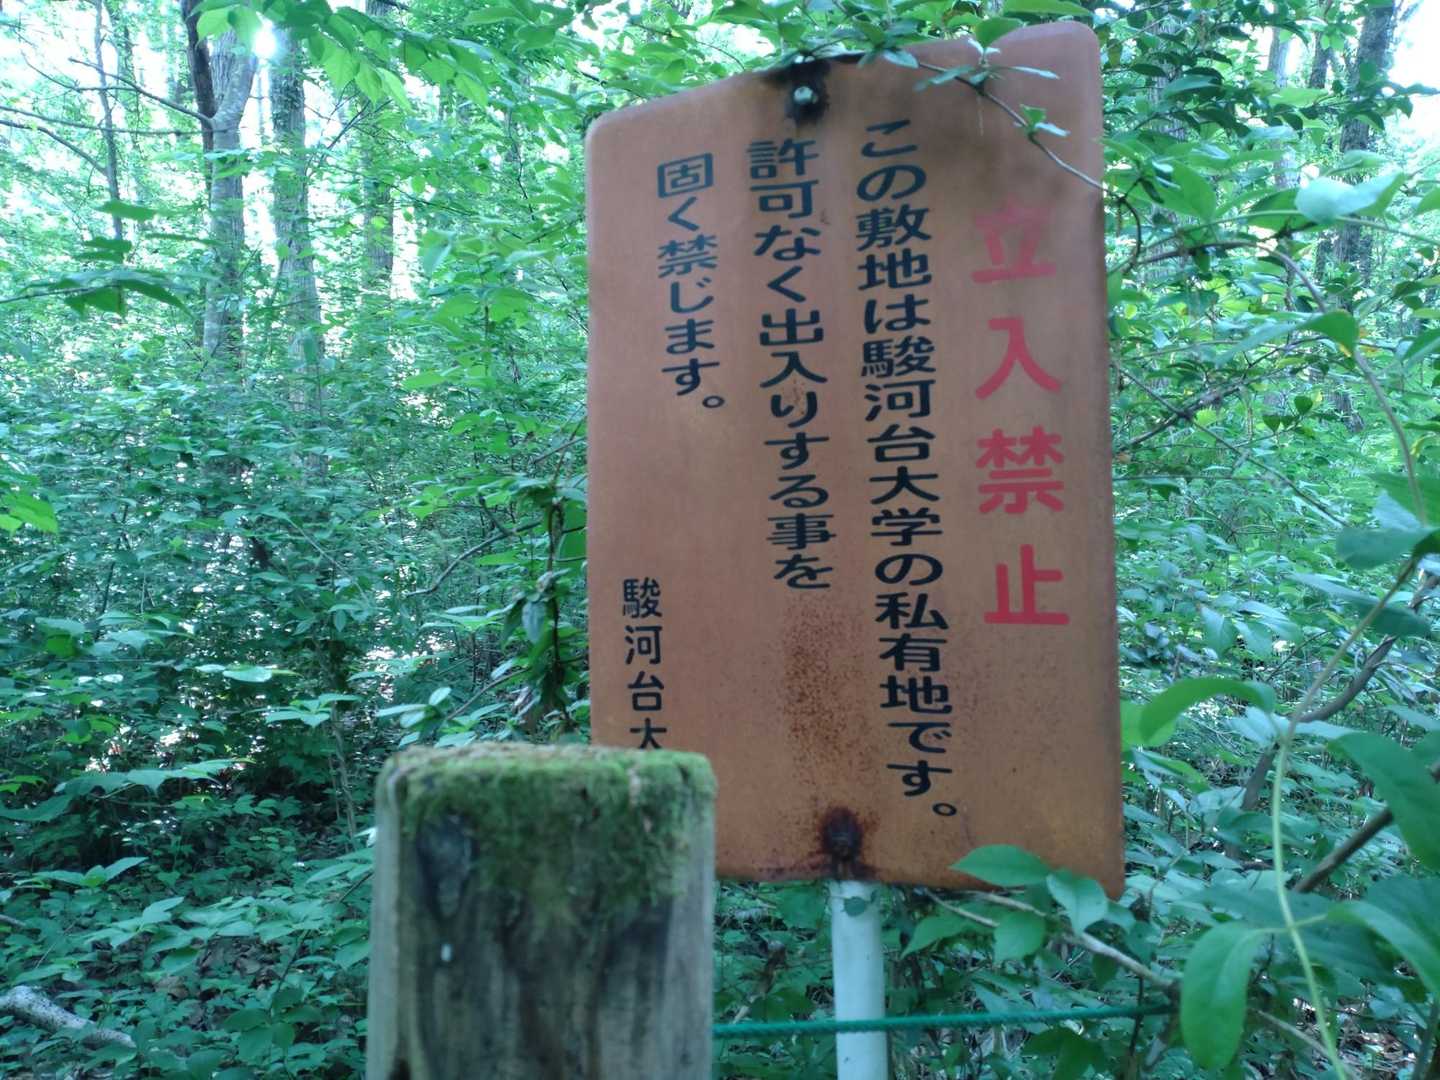 立入禁止
この敷地は駿河台大学の私有地です。
許可なく出入りする事を
固く禁じます。
駿河台大